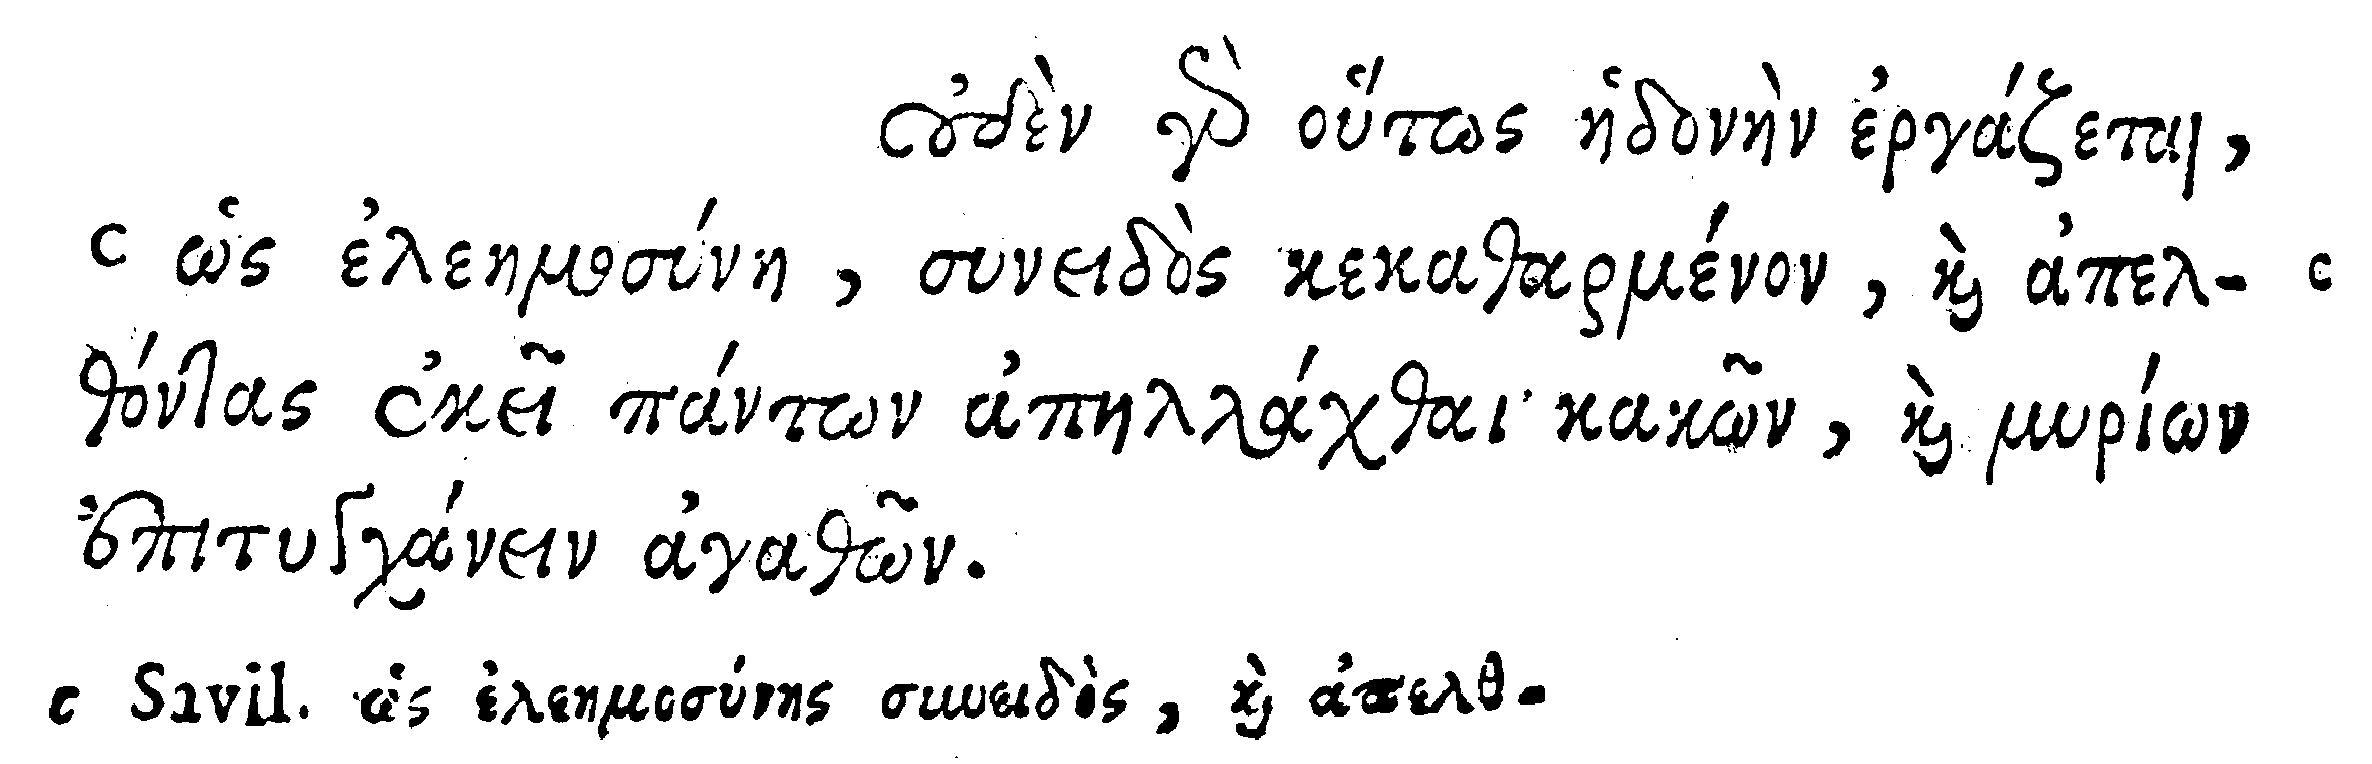 οὐδὲν γὰρ οὕτως ἡδονὴν ἐργάζεται,
c ὡς ἐλεημοσύνη, συνειδὸς κεκαθαρμένον, καὶ ἀπελ- c
θόντας ἐκεῖ πάντων ἀπηλλάχθαι κακῶν, καὶ μυρίων
ἐπιτυγχάνειν ἀγαθῶν.
c Savil. ὡς ἐλεημοσύνης συνειδὸς, καὶ ἀπελθ-